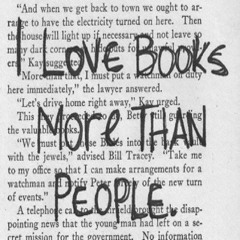 I LOVE BOOKS
MORE THAN
PEOPLE.
"And when we get back to town we ought to ar-
to have the electricity turned on here. Then
the house will light up if necessary and not leave
many dark for
Kay suggested.
"More than that, I must put a watchman on duty
here immediately," the lawyer answered.
"Let's drive home right away," Kay urged.
This still
the valuable books.
"We must into the
with the jewels," advised Bill Tracey. "Take me
to my office so that I can make arrangements for a
watchman and notify Peter of the new turn
of events."
A telephone call to the brought the disap-
pointing news that the young man had left on a se-
cret mission for the government. No information